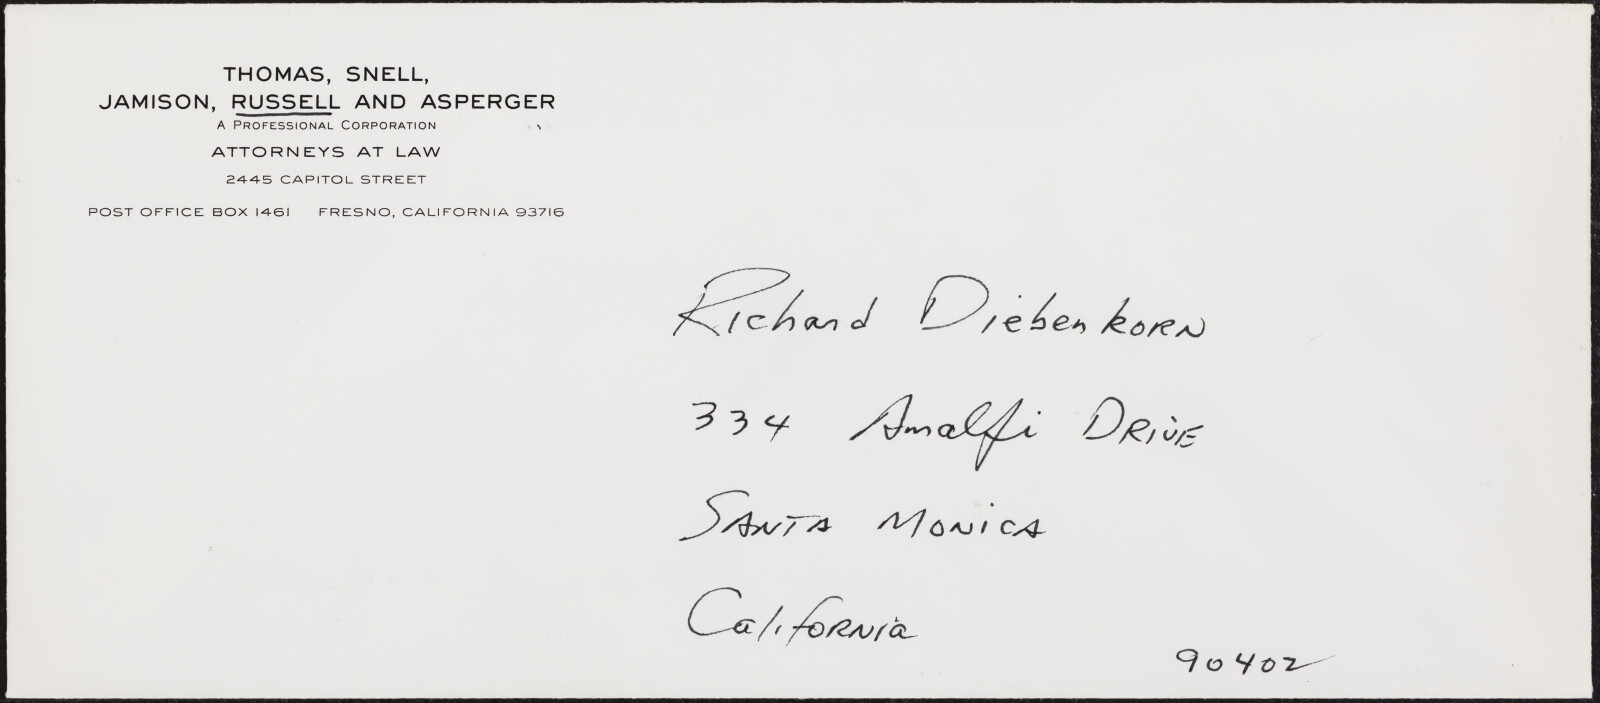 THOMAS, SNELL,
JAMISON, RUSSELL AND ASPERGER
A PROFESSIONAL CORPORATION
ATTORNEYS AT LAW
2445 CAPITOL STREET
POST OFFICE BOX 1461 FRESNO, CALIFORNIA 93716
Richard Diebenkorn
334 Amalfi Drive
Santa Monica
California
90402